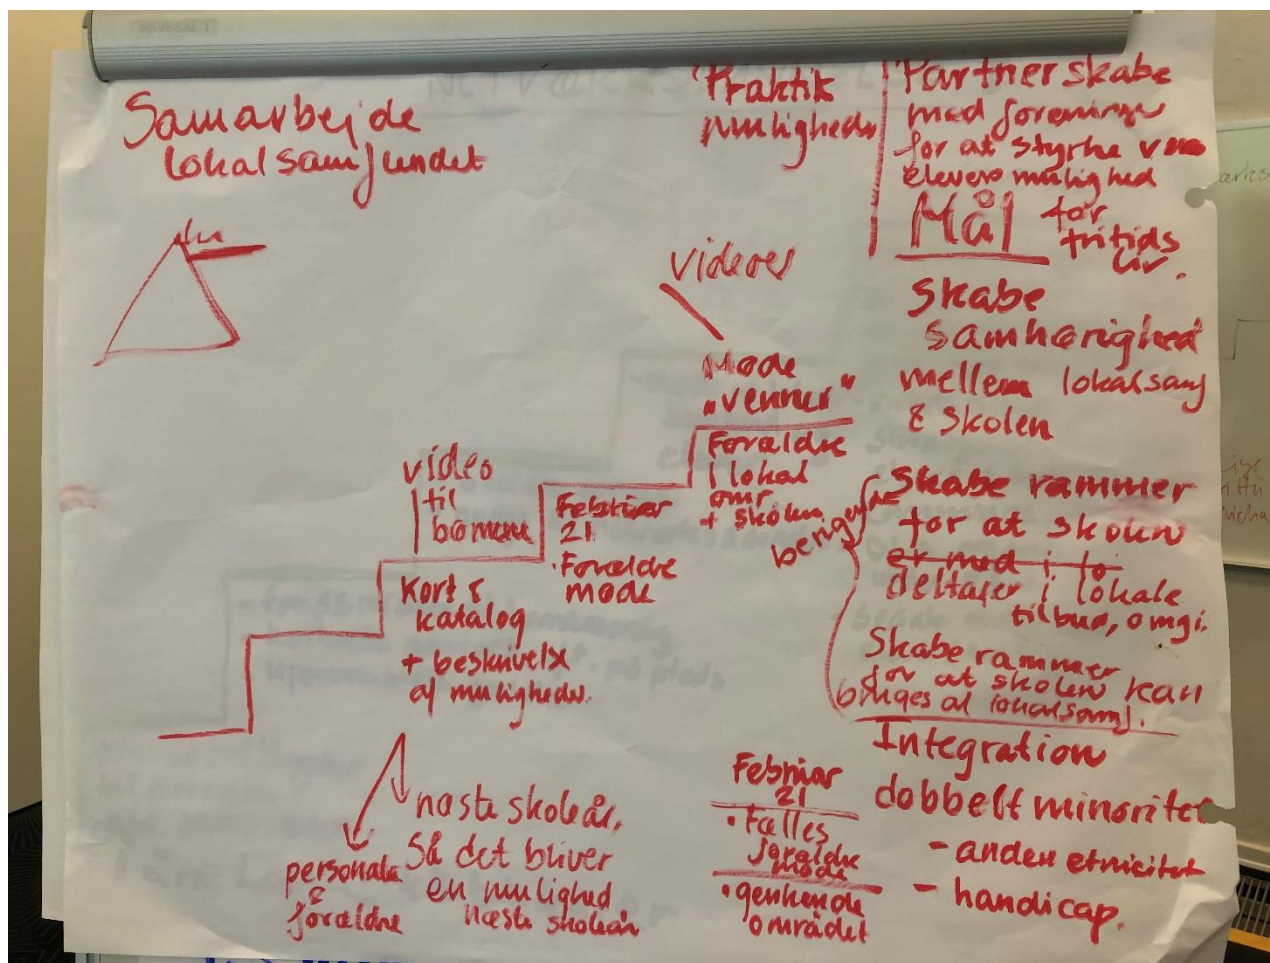 HAVESAL 1
Samarbejde
lokalsamfundet
Praktik
muligheder
Partnerskabe
med foreninger
for at styrke
elevers mulighed
for
fritids
liv.
Mål
Skabe
samhørighed
mellem lokalsamf
& skolen
videoer
Møde
"venner"
Forældre
i lokal
omr
+ skolen
video
til
børnene
Februar
21
· Forældre
møde
Kort &
katalog
+ beskrivelse
af muligheder.
berigende
Skabe rammer
for at skolen
er med i lo
deltager i lokale
tilbud, omgi.
Skabe rammer
for at skolen kan
bruges af lokalsamf.
Integration
dobbelt minoritet
- anden etnicitet
- handicap.
personale
&
forældre
næste skoleår,
Så det bliver
en mulighed
næste skoleår
Februar
21
· fælles
forældre
møde
· genkende
området